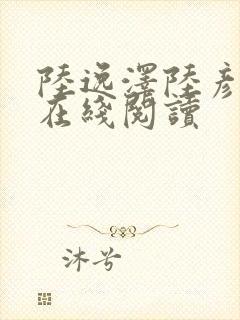 陸逸澤陸彥
在綫閱讀
沐兮